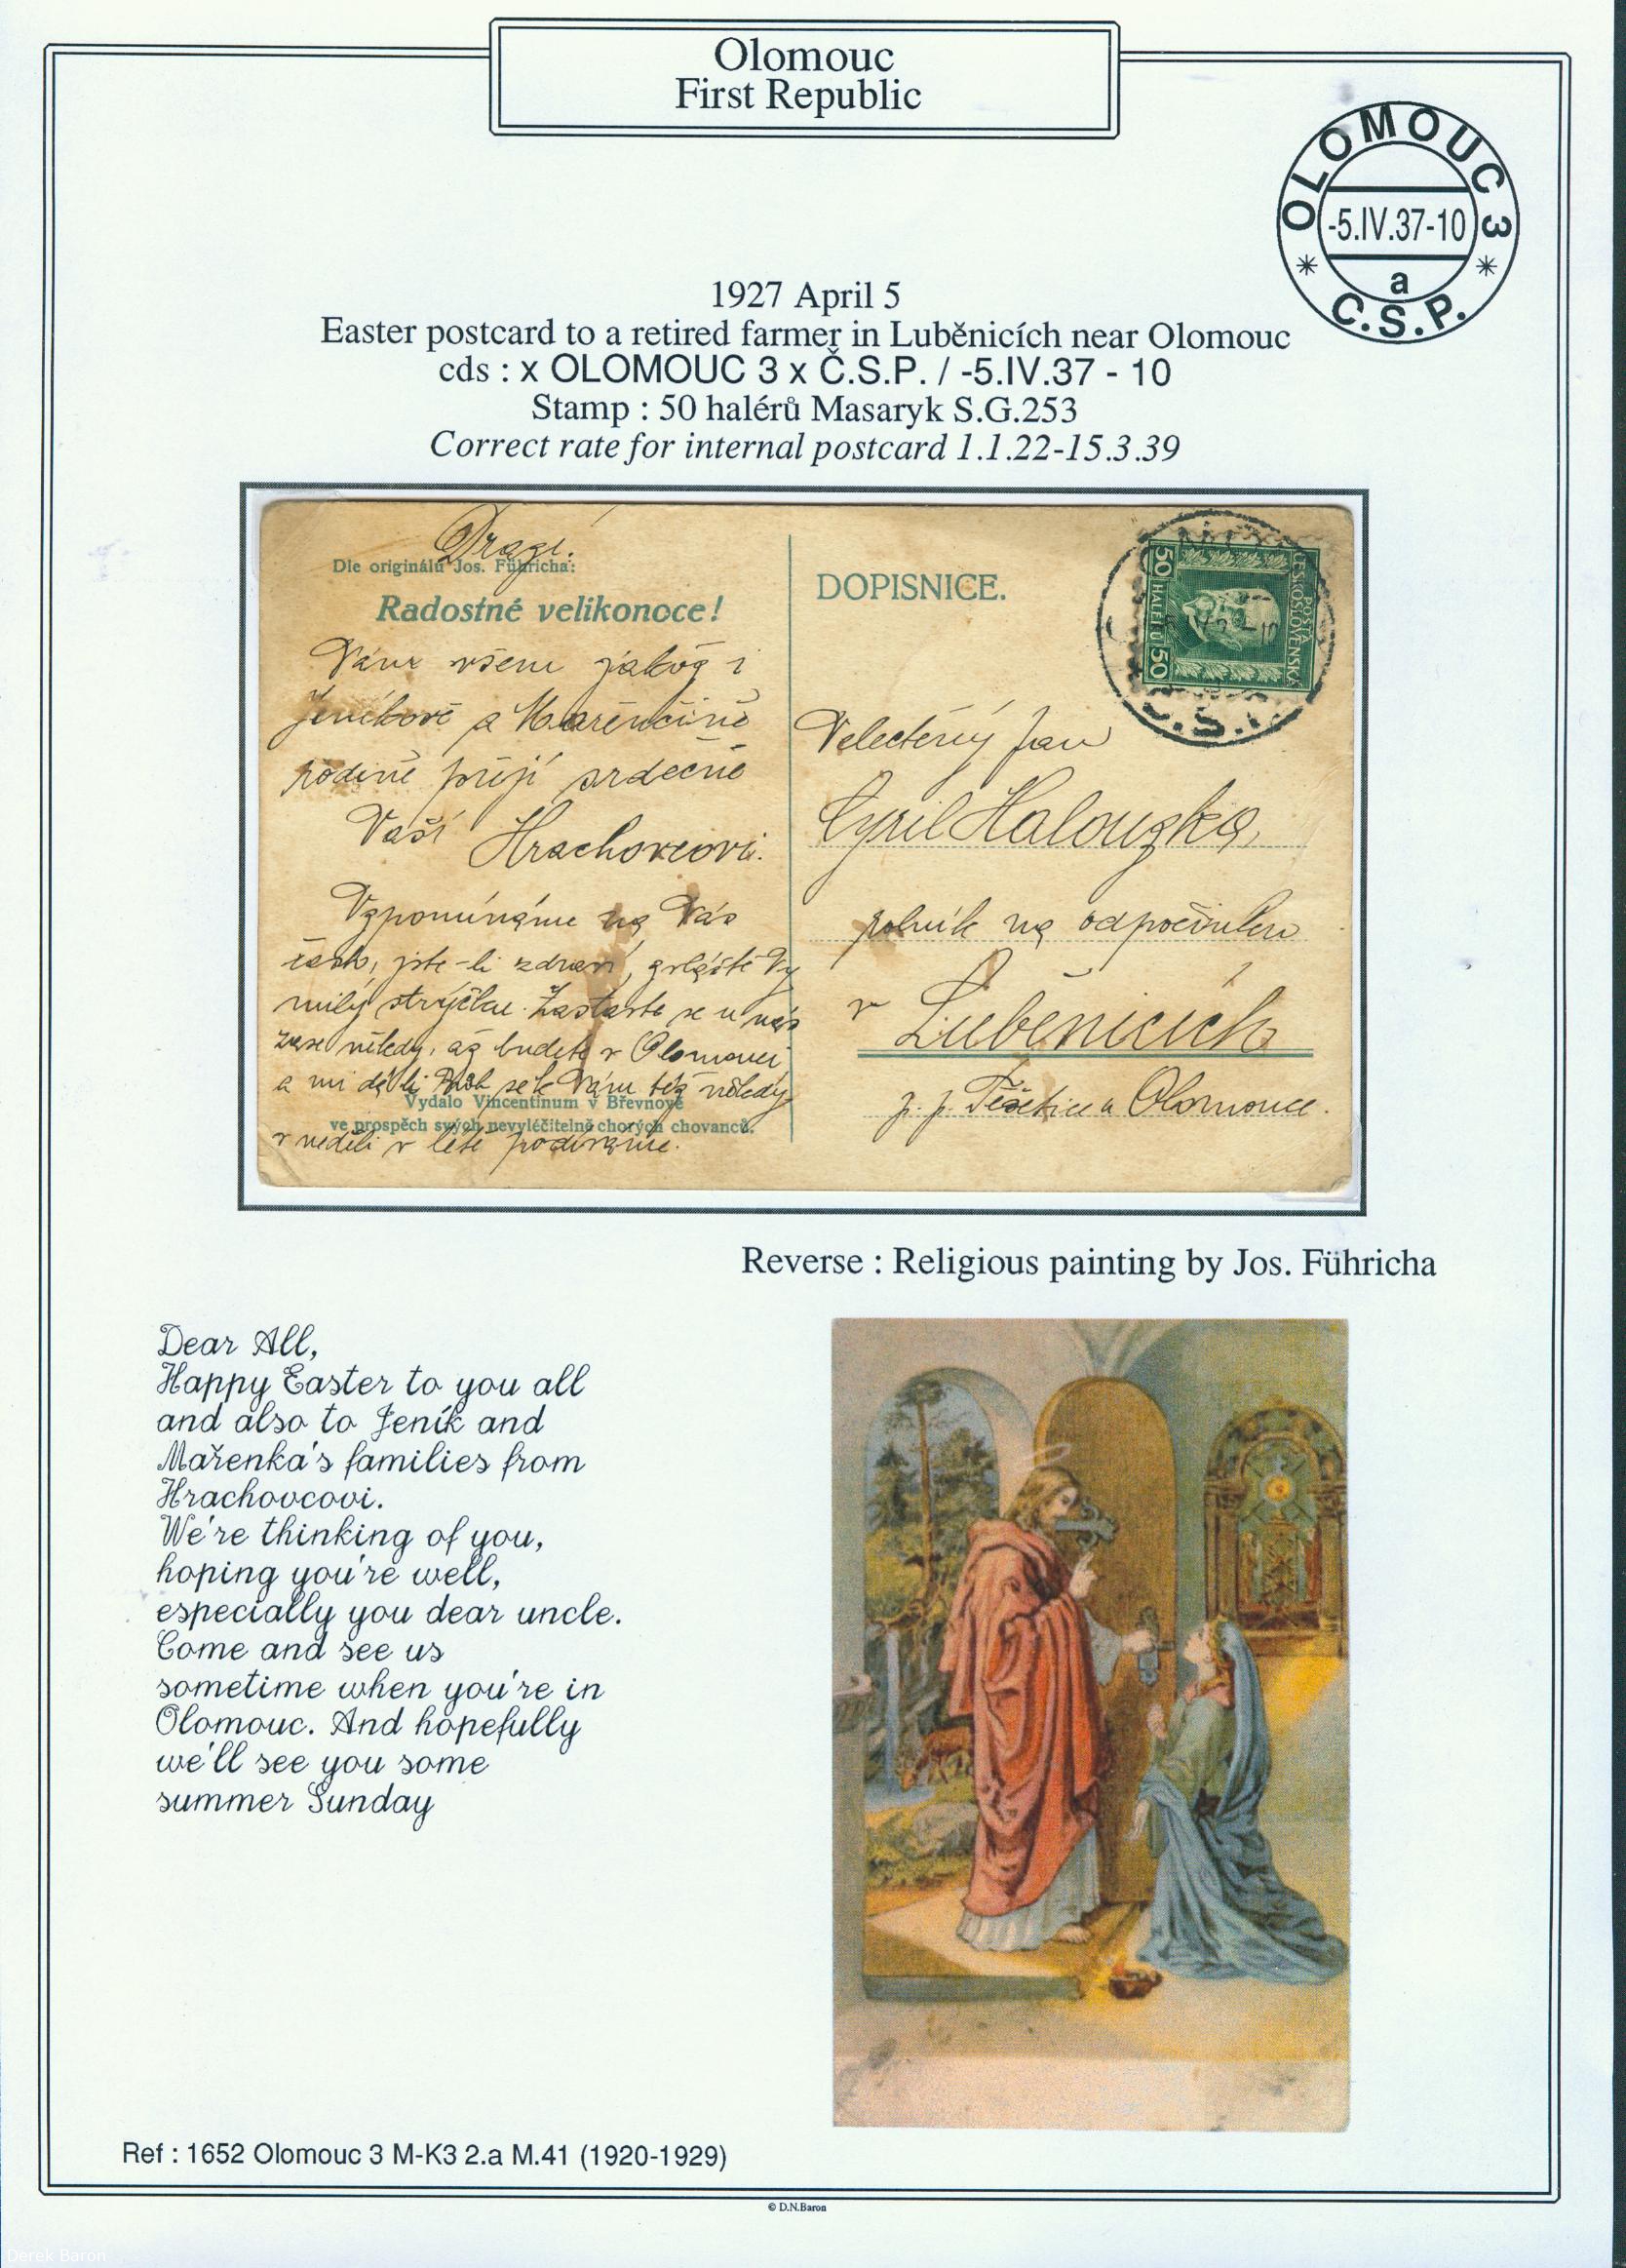 Olomouc
First Republic
OLOMOUC 3
-5.IV.37-10
a
* Č.S.P. *
1927 April 5
Easter postcard to a retired farmer in Luběnicích near Olomouc
cds : x OLOMOUC 3 x Č.S.P. / -5.IV.37 - 10
Stamp : 50 halérů Masaryk S.G.253
Correct rate for internal postcard 1.1.22-15.3.39
Drazí!
Dle originálu Jos. Führicha:
Radostné velikonoce!
Vám všem jakož i
Jeníkově a Mařenčině
rodině přejí srdečně
Vaši Hrachovcovi.
Vzpomínáme na Vás
často, jste-li zdraví, zvláště Vy
milý strýčku. Zastavte se u nás
zase někdy, až budete v Olomouci
a mi dá-li Bůh se k Vám též někdy
Vydalo Vincentinum v Břevnově
ve prospěch svých nevyléčitelně chorých chovanců.
v neděli v létě podíváme.
DOPISNICE.
POŠTA
ČESKOSLOVENSKÁ
50 HALÉŘŮ 50
Velectěný pan
Cyril Halouzka,
rolník na odpočinku
v Luběnicích
p. p. Těšetice u Olomouce.
Reverse : Religious painting by Jos. Führicha
Dear All,
Happy Easter to you all
and also to Jeník and
Mařenka's families from
Hrachovcovi.
We're thinking of you,
hoping you're well,
especially you dear uncle.
Come and see us
sometime when you're in
Olomouc. And hopefully
we'll see you some
summer Sunday
Ref : 1652 Olomouc 3 M-K3 2.a M.41 (1920-1929)
© D.N.Baron
Derek Baron